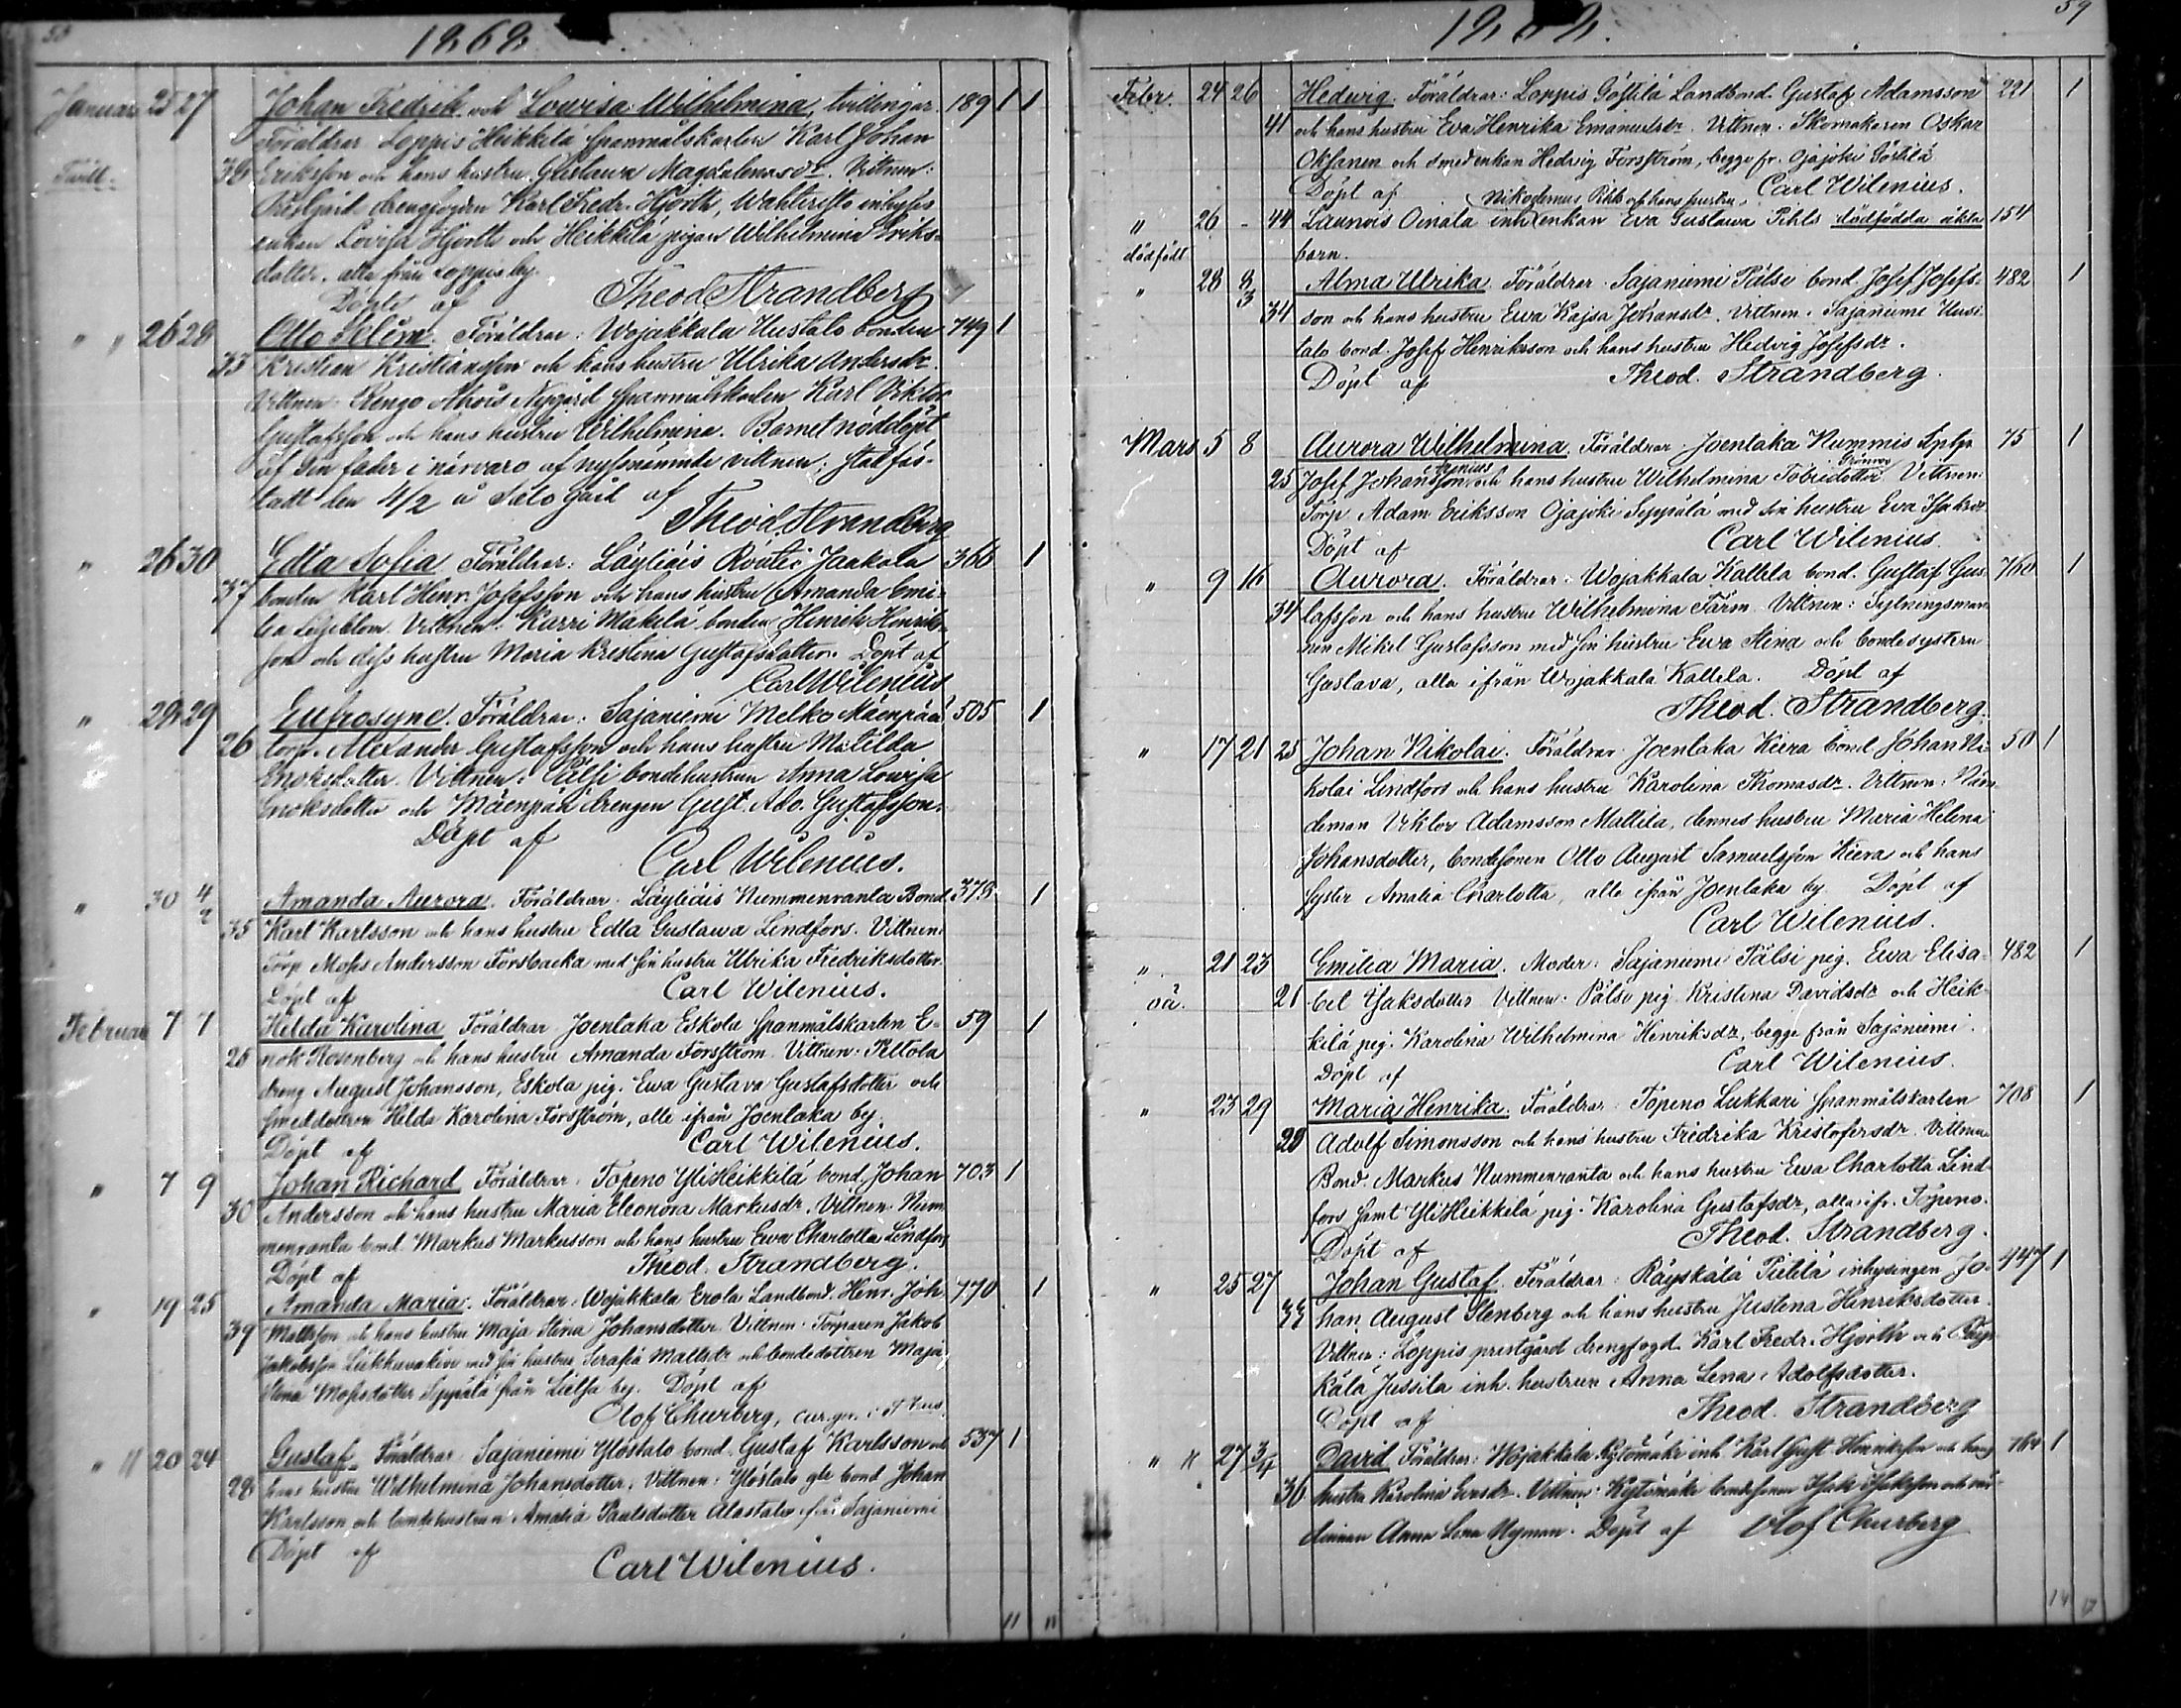 58
1868
Januari 25 27 Johan Fredrik och Lovisa Wilhelmina, tvillingar. 189 1 1
Föräldrar Loppis Heikkilä spanmålskarlen Karl Johan
Tvill. 36 Eriksson och hans hustru Gustava Magdalenasdr. Vittnen:
Prestgårds drengfogden Karl Fredr. Hjorth, inhyses
enkan Lovisa Hjorth och Heikkilä pigan Wilhelmina Eriks-
dotter, alla från Loppis by.
Döpte af Theod Strandberg
" " 26 28 Otto Selim. Föräldrar: Wojakkala Uustalo bonden 749 1
33 Kristian Kristiansson och hans hustru Ulrika Andersdr.
Vittnen: Renge Ahois Nygård spanmålskarlen Karl Viktor
Gustafsson och hans hustru Wilhelmina. Barnet nöddöpt
af sin fader i närvaro af nyssnämnde vittnen; stadfäs-
tadt den 4/2 å gård af
Theod. Strandberg
" 26 30 Edla Sofia Föräldrar: Läyliäis Routio Jaakola 366 1
37 bonden Karl Henr. Josefsson och hans hustru Amanda Emi-
lia Liljeblom. Vittnen: Karri Mäkilä bonden Henrik Henriks-
son och dess hustru Maria Kristina Gustafsdotter. Döpt af
Carl Wilenius
" 28 29 Eufrosyne. Föräldrar: Sajaniemi Melko Mäenpää 505 1
26 torp. Alexander Gustafsson och hans hustru Matilda
Enoksdotter. Vittnen: Pälsi bondehustrun Anna Lovisa
Enoksdotter och Mäenpää drengen Gust. Ado. Gustafsson.
Döpt af
Carl Wilenius.
" 30 4/2 Amanda Aurora. Föräldrar. Läyliäis Nummenranta Bond. 378 1
35 Karl Karlsson och hans hustru Edla Gustava Lindfors. Vittnen:
Torp. Moses Andersson Forsbacka med sin hustru Ulrika Fredriksdotter.
Döpt af Carl Wilenius.
Februari 7 7 Hilda Karolina Föräldrar Joenlaka Eskola spanmålskarlen E- 59 1
25 nok Rosenberg och hans hustru Amanda Forsström. Vittnen: Peltola
dreng August Johansson, Eskola pig. Ewa Gustava Gustafsdotter och
smeddottren Hilda Karolina Forsström, alla ifrån Joenlaka by.
Döpt af Carl Wilenius.
" 7 9 Johan Richard Föräldrar: Topeno YliHeikkilä bond. Johan 703 1
30 Andersson och hans hustru Maria Eleonora Markusdr. Vittnen: Num-
menranta bond. Markus Markusson och hans hustru Ewa Charlotta Lindfors
Döpt af Theod. Strandberg.
" 19 25 Amanda Maria. Föräldrar: Wojakkala Erola Landbond. Henr. Joh. 770 1
39 Mattsson och hans hustru Maja Stina Johansdotter. Vittnen: Torparen Jakob
Jakobsson med sin hustru Serafia Mattsdr och bondedottren Maja
Stina Mosesdotter Seppälä från by. Döpt af
Olof Churberg,
" 20 24 Gustaf. Föräldrar Sajaniemi Ylöstalo bond. Gustaf Karlsson och 537 1
28 hans hustru Wilhelmina Johansdotter. Vittnen: Ylöstalo gle bond Johan
Karlsson och bondehustrun Amalia Paulsdotter Alastalo ifrån Sajaniemi
Döpt af
Carl Wilenius.
11 11
59
1868.
Febr. 24 26 Hedwig. Föräldrar: Loppis Göstilä Landbond. Gustaf Adamsson 221 1
41 och hans hustru Eva Henrika Emanuelsdr. Vittnen: Skomakaren Oskar
Oksanen och smedenkan Hedvig Forsström, begge fr. Ojajoki Göstilä
Döpt af Carl Wilenius.
Nikodemus Pihls och hans hustru
" 26 - 44 Launois Oinala inh. enkan Eva Gustava Pihls dödfödda äkta 154
dödfödt barn.
" 28 8/3 Alma Ulrika Föräldrar. Sajaniemi Pälsi bond. Josef Josefs- 482 1
34 son och hans hustru Ewa Kajsa Johansdr. Vittnen: Sajaniemi Uusi-
talo bond. Josef Henriksson och hans hustru Hedvig Josefsdr.
Döpt af Theod. Strandberg.
Mars 5 8 Aurora Wilhelmina. Föräldrar. Joenlaka Nummis 75 1
25 Josef Johansson och hans hustru Wilhelmina Tobiedotter Grönroos Vittnen:
Torp. Adam Eriksson Ojajoki Seppälä med sin hustru Eva Isaksdr
Döpt af Carl Wilenius.
" 9 16 Aurora. Föräldrar: Wojakkala Kallela bond. Gustaf Gus- 760 1
34 tafsson och hans hustru Wilhelmina Färm. Vittnen: Sytningsman-
nen Mikel Gustafsson med sin hustru Ewa Stina och bondesystern
Gustava, alla ifrån Wojakkala Kallela. Döpt af
Theod. Strandberg.
" 17 21 25 Johan Nikolai. Föräldrar. Joenlaka Kiera bond. Johan Ni- 50 1
kolai Lindfors och hans hustru Karolina Thomasdr. Vittnen: Nämn-
deman Viktor Adamsson Mattila, dennes hustru Maria Helena
Johansdotter, bondesonen Otto August Samuelsson Kiera och hans
syster Amalia Charlotta, alla ifrån Joenlaka by. Döpt af
Carl Wilenius.
" 21 23 Emilia Maria. Moder: Sajaniemi Pälsi pig. Ewa Elisa- 482 1
oä. 21 bet Isaksdotter Vittnen: Pälsi pig. Kristina Davidsdr och Heik-
kilä pig. Karolina Wilhelmina Henriksdr, begge från Sajaniemi.
Döpt af Carl Wilenius.
" 23 29 Maria Henrika. Föräldrar: Topeno Lukkari spanmålskarlen 708 1
28 Adolf Simonsson och hans hustru Fredrika Kristofersdr. Vittnen:
Bond. Markus Nummenranta och hans hustru Ewa Charlotta Lind-
fors samt YliHeikkilä pig. Karolina Gustafsdr, alla ifr. Topeno.
Döpt af Theod. Strandberg.
" 25 27 Johan Gustaf. Föräldrar: Räyskälä Pietilä inhysingen Jo- 447 1
33 han August Stenberg och hans hustru Justina Henriksdotter.
Vittnen: Loppis prestgård drengfogd. Karl Fredr. Hjorth och Räys-
kälä Jussila inh. hustrun Anna Lena Adolfsdotter.
Döpt af Theod. Strandberg
" 27 3/4 David. Föräldrar: Wojakkala Kytömäki inh. Karl Gust. Henriksson och hans 764 1
36 hustru Karolina Eriksdr. Vittnen: Kytömäki bondesonen Isak Isaksson och vär-
dinnan Anna Lena Nyman. Döpt af Olof Churberg
14 17